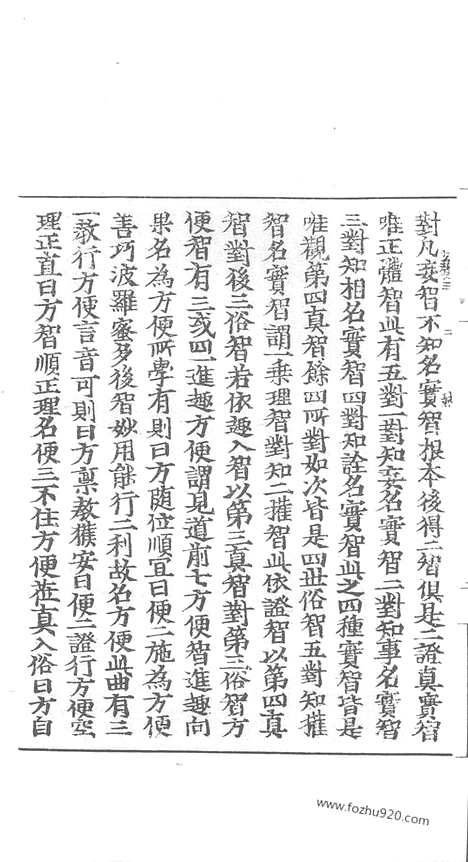 對凡妄智不知名實智根本後得二智俱是二證真實智
唯正體智此有五對一對知妄名實智二對知事名實智
三對知相名實智四對知詮名實智此之四種實智皆是
唯觀第四真智餘四所對如次皆是四世俗智五對知權
智名實智謂一乘理智對知二權智此依證智以第四真
智對後三俗智若依趣入智以第三真智對第三俗智方
便智有三或四一進趣方便謂見道前七方便智進趣向
果名為方便所學有則曰方隨位順宜曰便二施為方便
善巧波羅蜜多後智妙用能行二利故名方便此曲有三
一教行方便言音可則曰方稟教獲安曰便二證行方便空
理正直曰方智順正理名便三不住方便莅真入俗曰方自
二
www.fozhu920.com